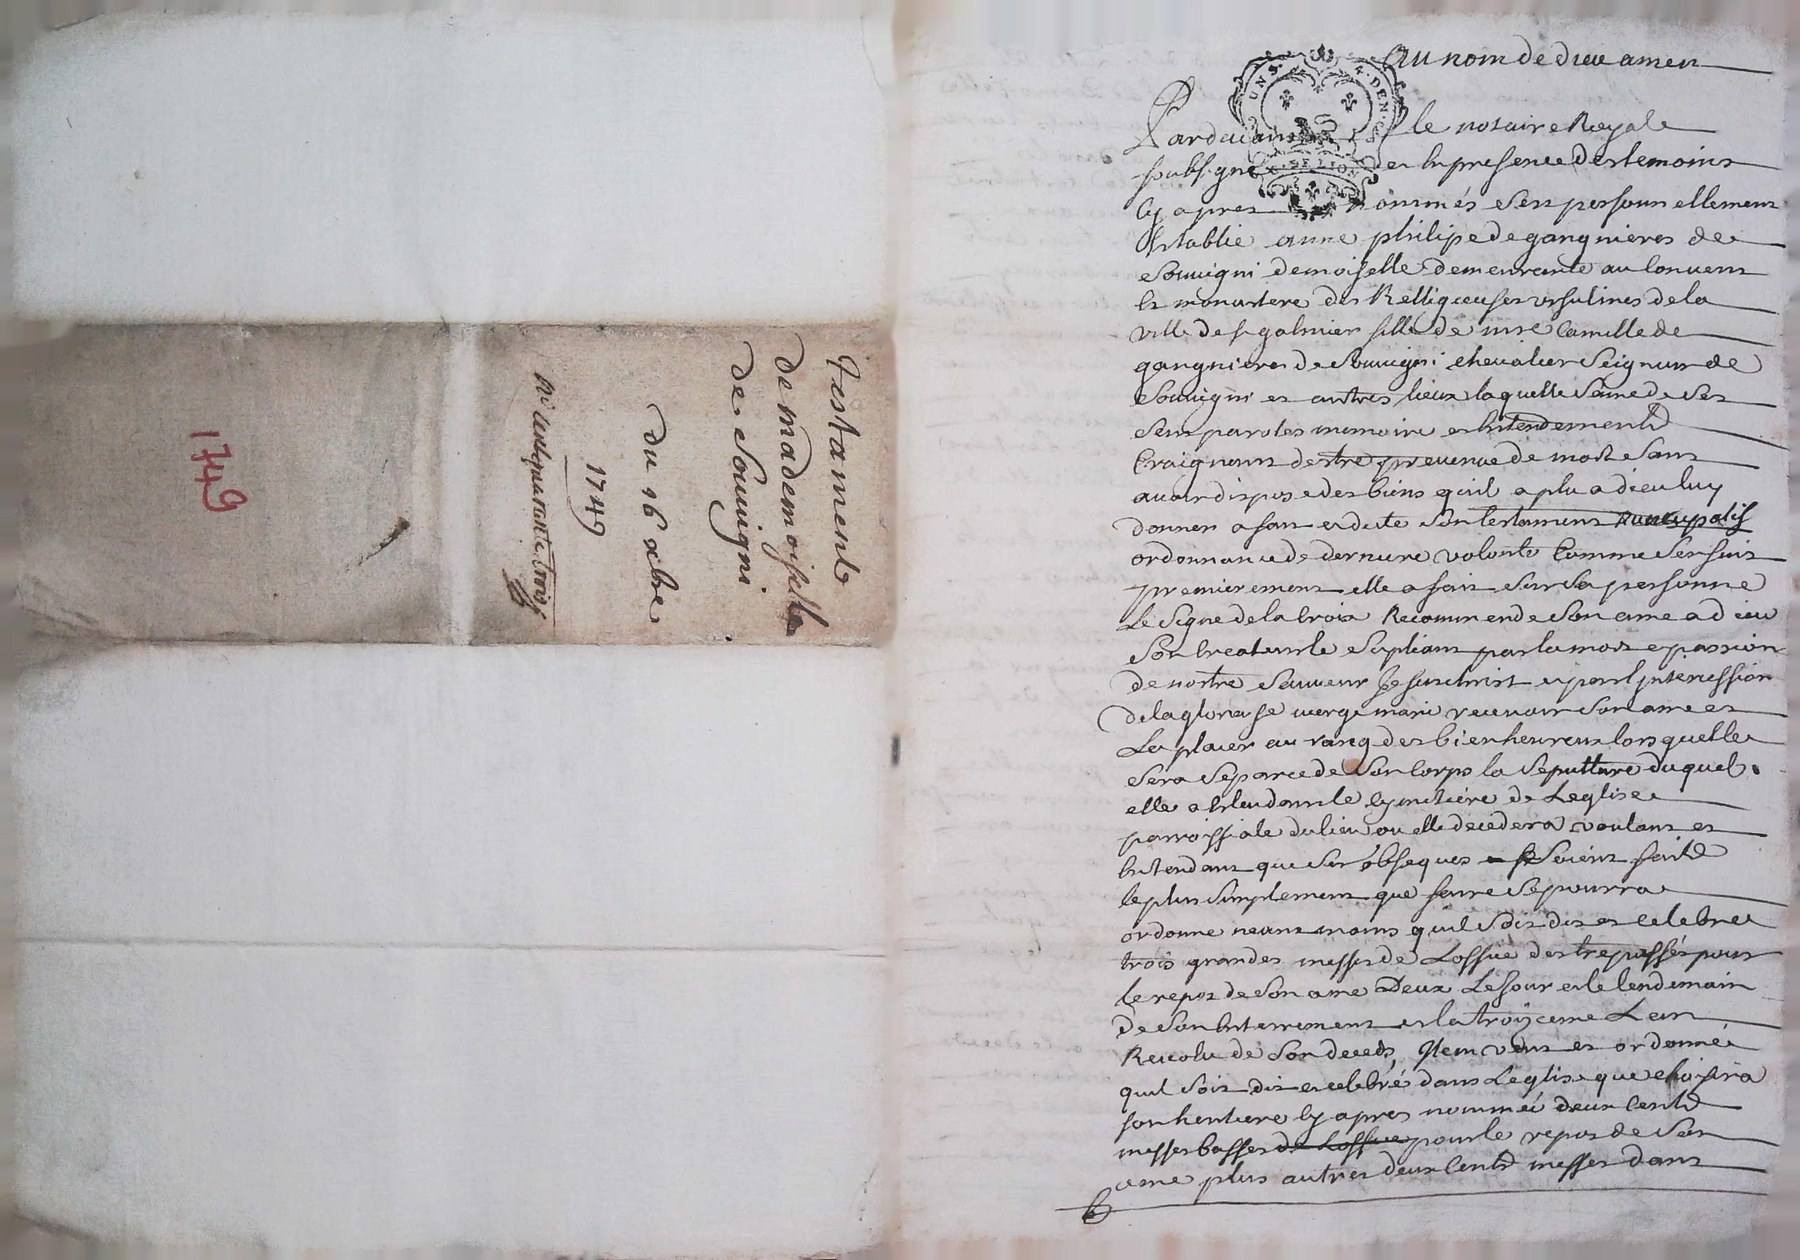 testament
de mademoiselle
de Souvigni
du 16 xbre
1749
No cent quarante trois
1749
au nom de dieu amen
UNS. 4. DEN.
DE LION
Pardevant le notaire Royale
soubsigné et en presence des temoins
cy apres nommés s'est personnellement
establie anne philipe de gangnieres de
Souvigni demoiselle demeurante au convent
et monastere des Relligieuses ursulines de la
ville de st galmier fille de mre Camille de
gangnieres de Souvigni chevalier Seigneur de
Souvigni et autres lieux laquelle Saine de Ses
Sens paroles memoire et entendement
Craignant destre prevenue de mort Sans
avoir disposé des biens quil a plu a dieu luy
donner a fait et dicté Son testament nuncupatif
ordonnance de derniere volonté Comme Sensuit
premierement elle a fait Sur Sa personne
Le Signe de la Croix Recommende Son ame a dieu
Son Createur le Supliant par la mort e passion
de nostre Sauveur Jesuschrist et par lintercession
de la glorieuse vierge marie recevoir Son ame et
La placer au rang des bienheureux lorsquelle
Sera Separée de Son Corps la Sepulture duquel
elle a esleu dans le cymetiére de Leglise
parroissiale du lieu ou elle decedera voulant et
Entendant que Ses obseques Soient faits
le plus Simplement que faire Se pourra
ordonne neant moins quil Soit dit et celebré
trois grandes messes de Loffice des trepassés pour
le repos de Son ame Deux Le jour et le lendemain
de Son Enterrement et la troizieme Lan
Revolu de Son deceds, Item veut et ordonne
quil Soit dit et celebré dans Leglise que choisira
son heritiere cy apres nommée deux Cents
messes basses de Loffice pour le repos de Son
ame plus autres deux Cents messes dans